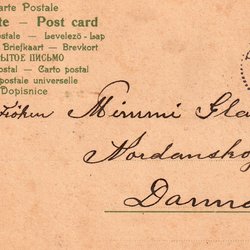 Carte Postale
te – Post card
ostale – Levelező-Lap
Briefkaart – Brevkort
РЫТОЕ ПИСЬМО
ostal – Carto postal
postale universelle
Dopisnice
Fröken Mimmi Gla
Nordansko
Danne